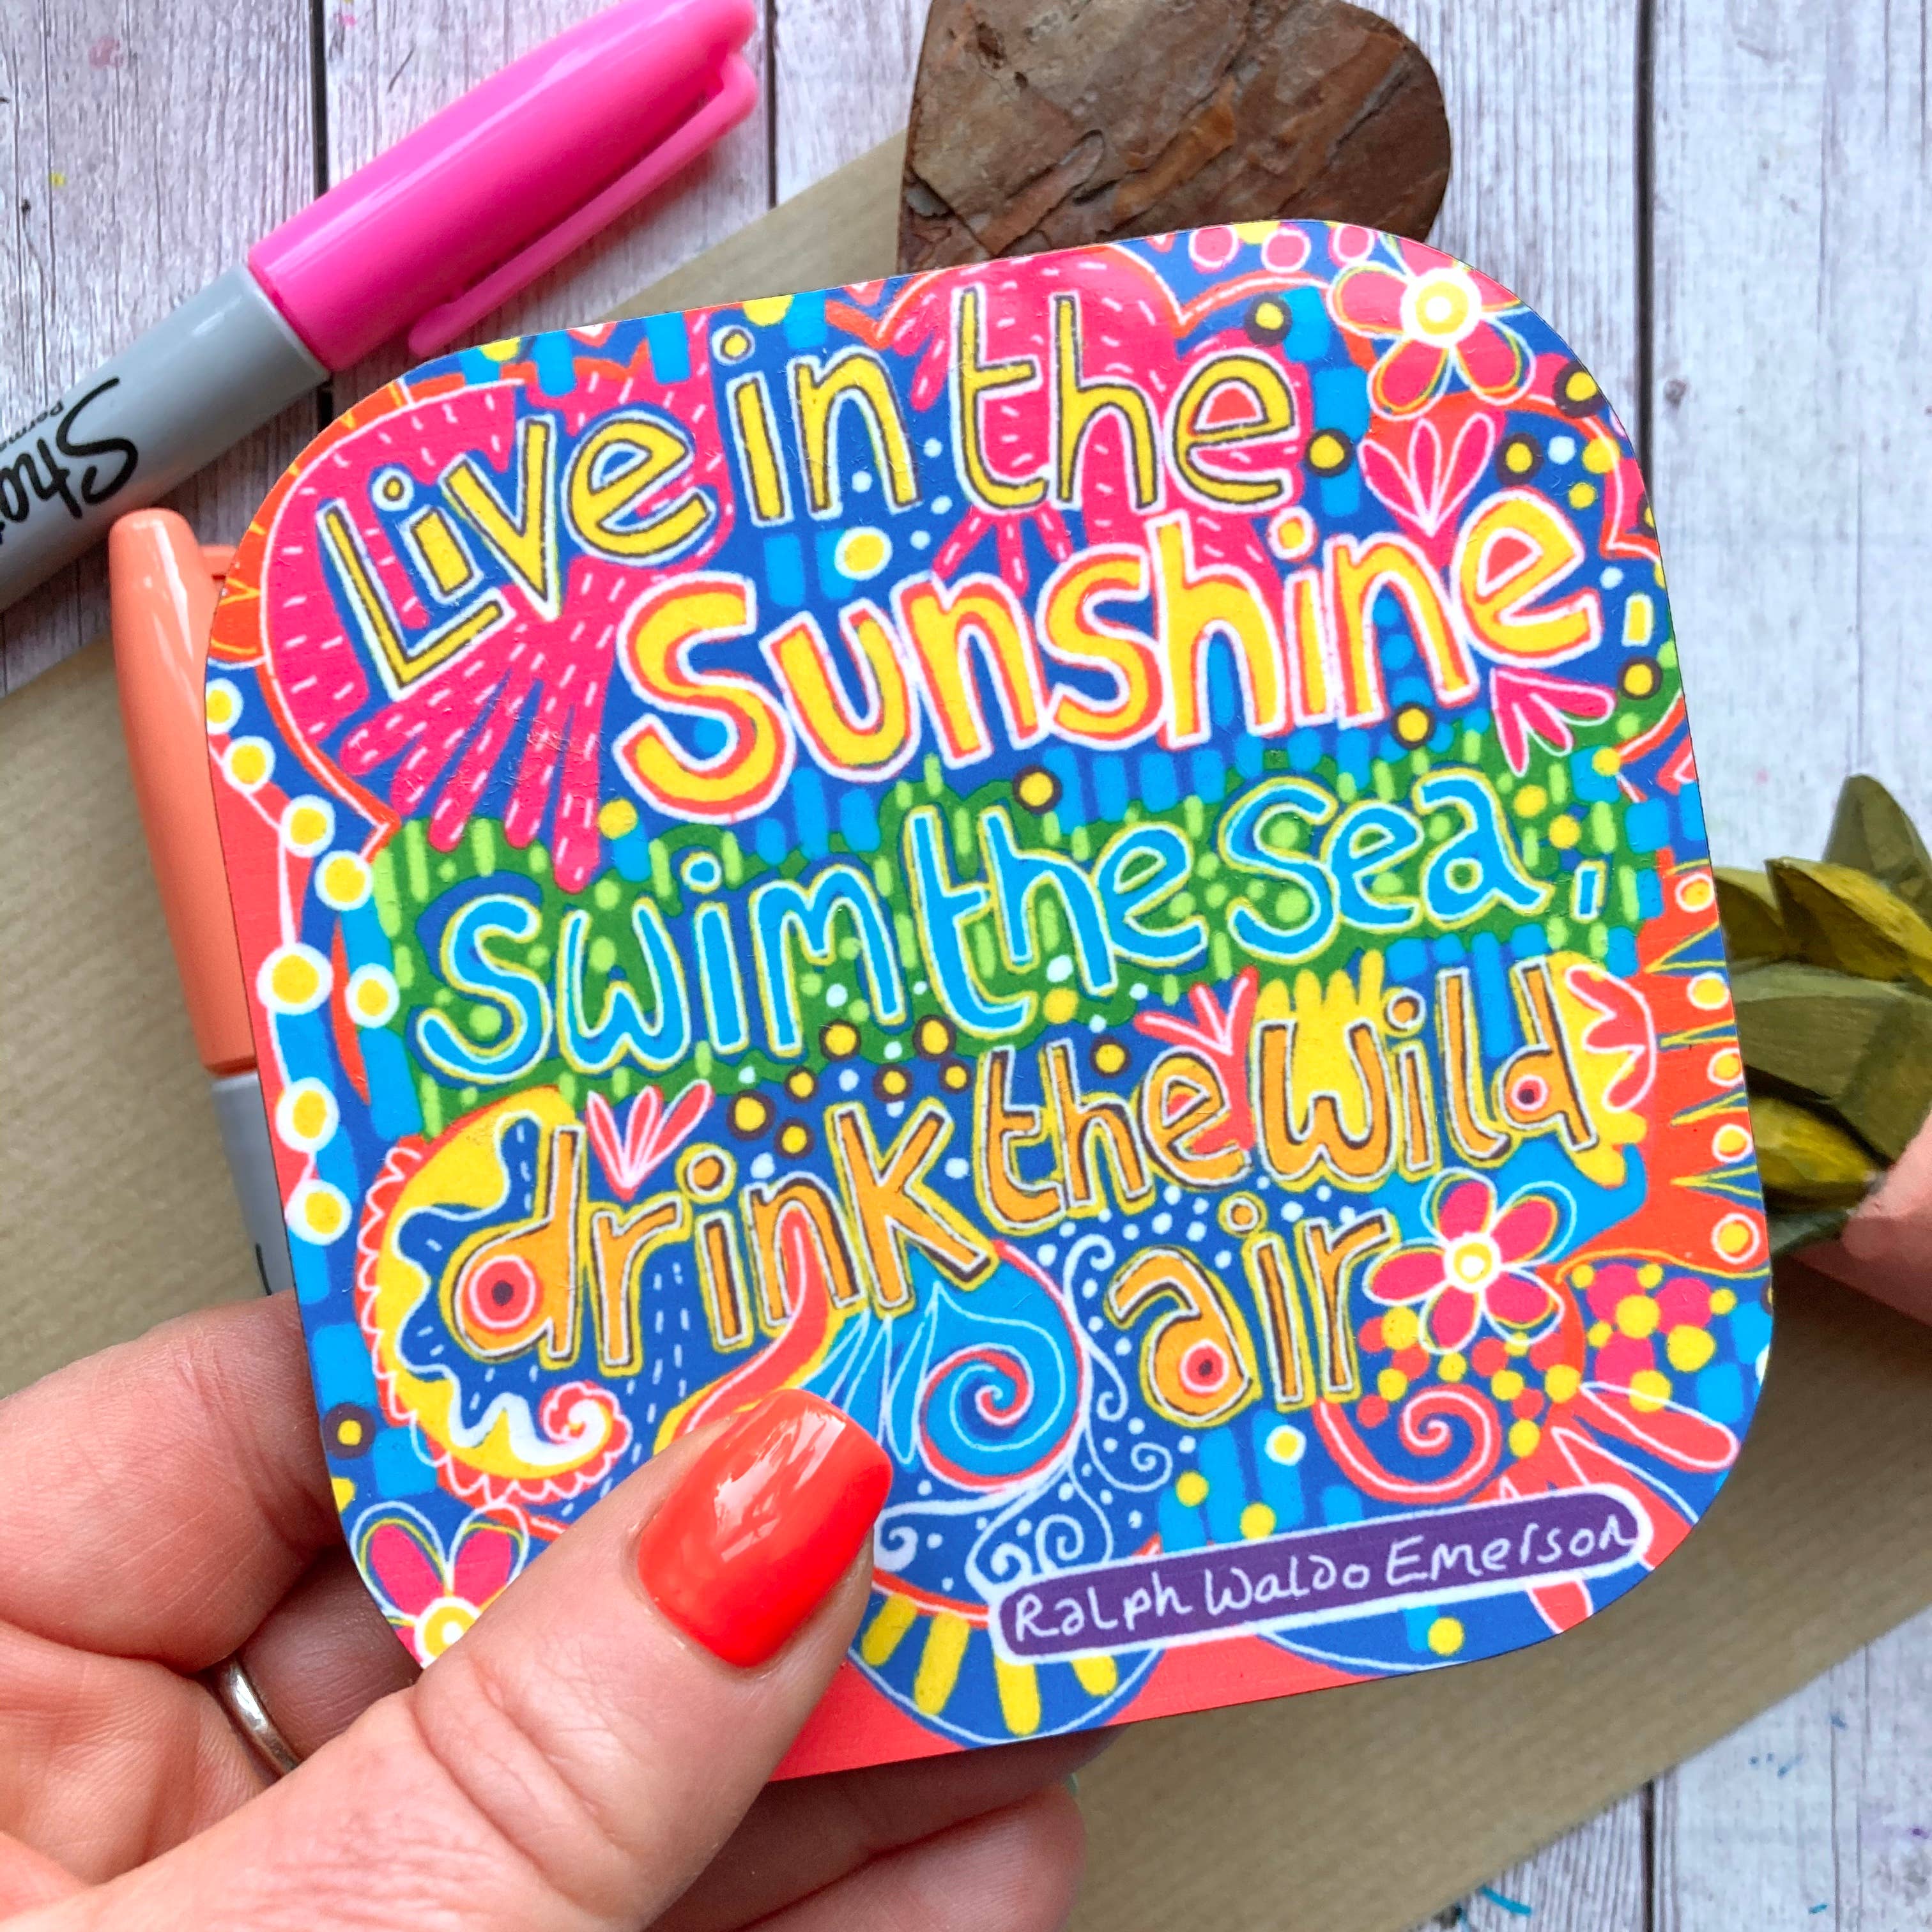 Live in the
Sunshine,
Swim the Sea,
drink the wild
air
Ralph Waldo Emerson